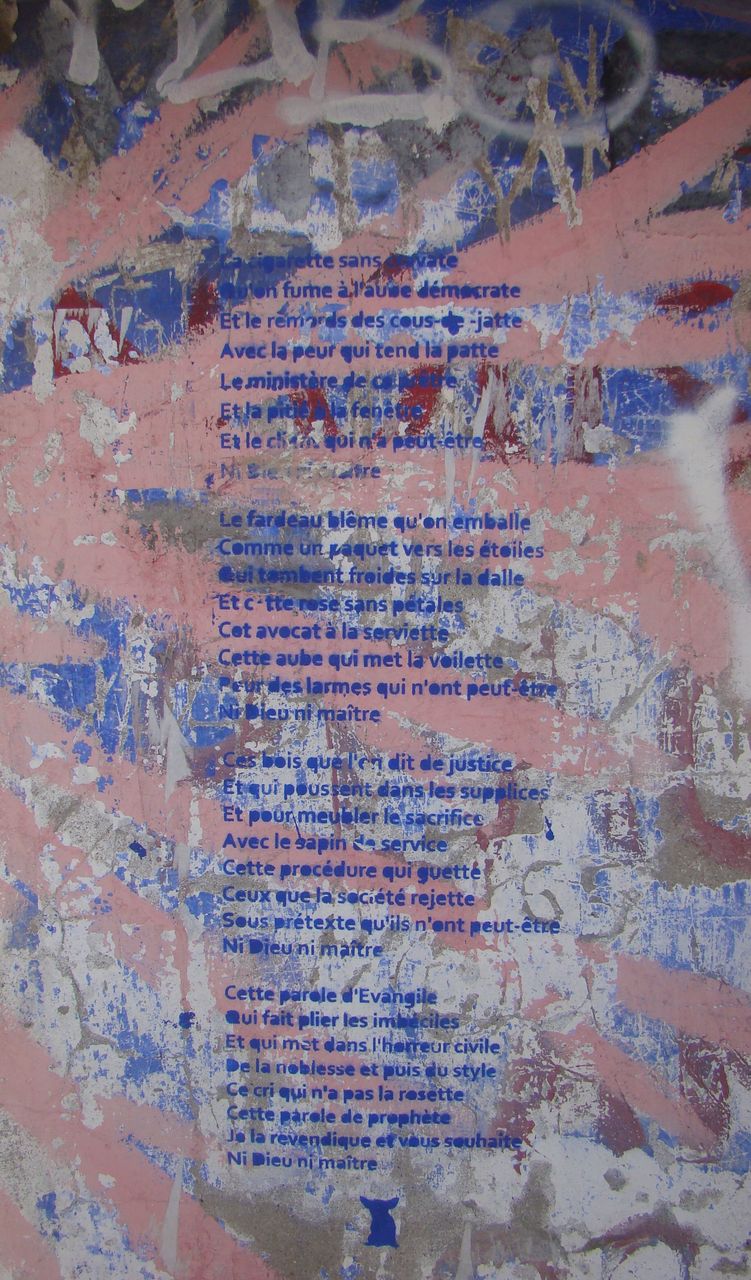 La cigarette sans cravate
Qu'on fume à l'aube démocrate
Et le remords des cous-de-jatte
Avec la peur qui tend la patte
Le ministère de ce prêtre
Et la pitié à la fenêtre
Et le client qui n'a peut-être
Ni Dieu ni maître
Le fardeau blême qu'on emballe
Comme un paquet vers les étoiles
Qui tombent froides sur la dalle
Et cette rose sans pétales
Cet avocat à la serviette
Cette aube qui met la voilette
Pour des larmes qui n'ont peut-être
Ni Dieu ni maître
Ces bois que l'on dit de justice
Et qui poussent dans les supplices
Et pour meubler le sacrifice
Avec le sapin de service
Cette procédure qui guette
Ceux que la société rejette
Sous prétexte qu'ils n'ont peut-être
Ni Dieu ni maître
Cette parole d'Evangile
Qui fait plier les imbéciles
Et qui met dans l'horreur civile
De la noblesse et puis du style
Ce cri qui n'a pas la rosette
Cette parole de prophète
Je la revendique et vous souhaite
Ni Dieu ni maître